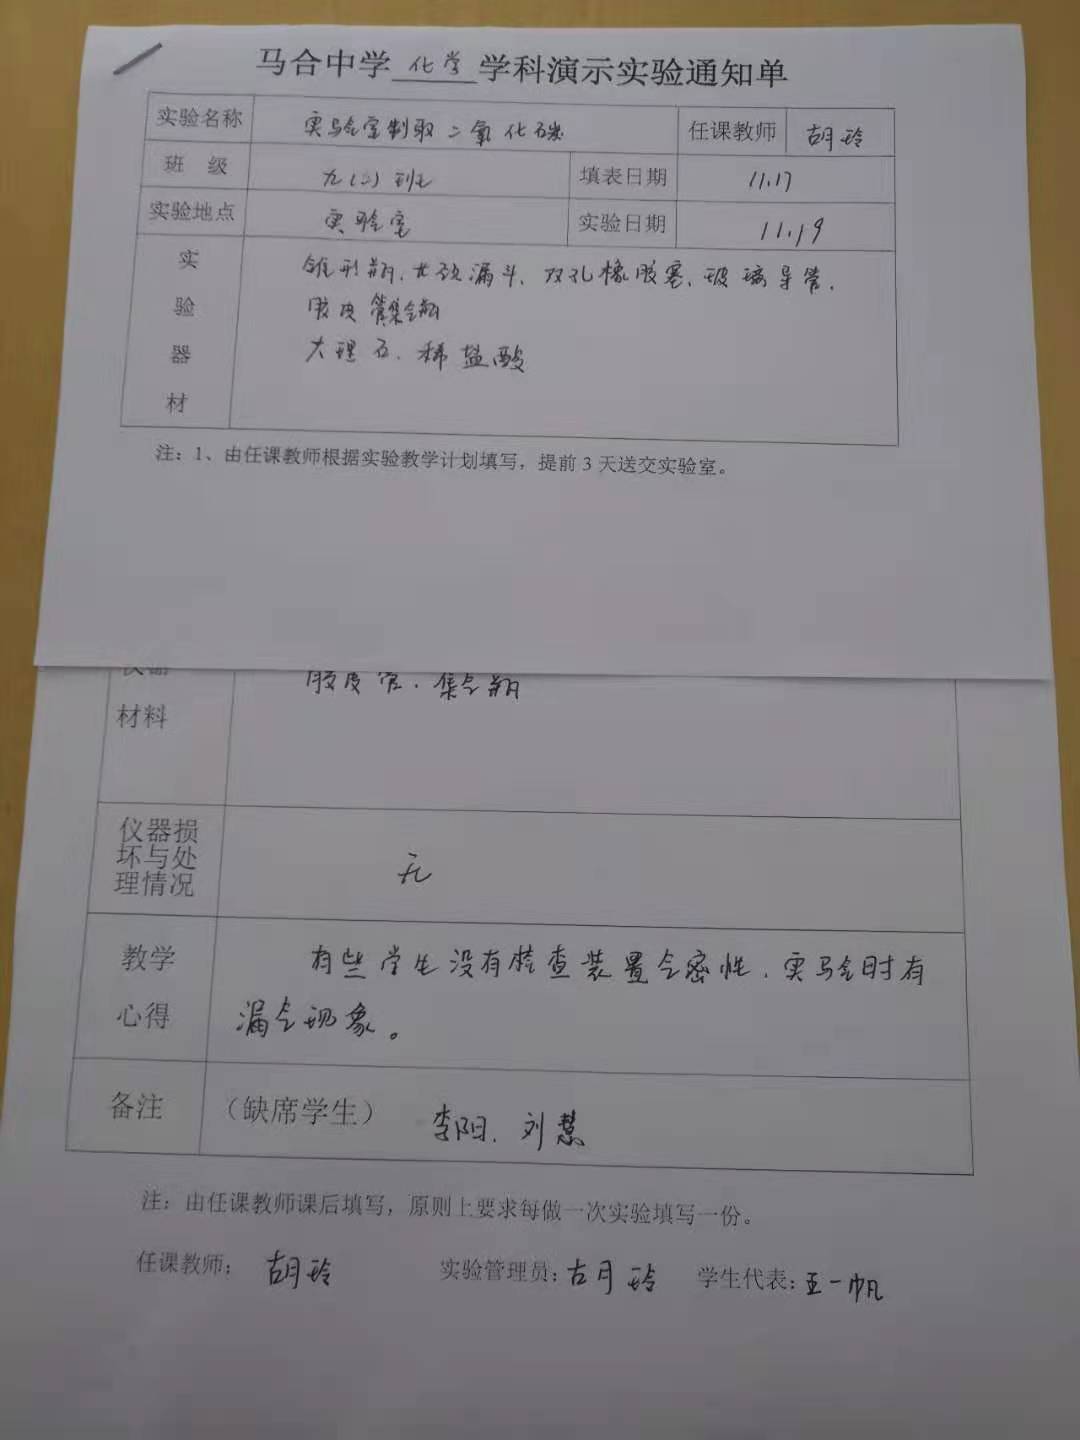 马合中学 化学 学科演示实验通知单
实验名称 实验室制取二氧化碳 任课教师 胡玲
班 级 九(二)班 填表日期 11.17
实验地点 实验室 实验日期 11.19
实验器材
锥形瓶、长颈漏斗、双孔橡胶塞、玻璃导管、
胶皮管集气瓶
大理石、稀盐酸
注：1、由任课教师根据实验教学计划填写，提前 3 天送交实验室。
仪器 胶皮管、集气瓶
材料
仪器损
坏与处 无
理情况
教学 有些学生没有检查装置气密性，实验时有
心得 漏气现象。
备注 （缺席学生） 李阳、刘慧
注：由任课教师课后填写，原则上要求每做一次实验填写一份。
任课教师： 胡玲 实验管理员：胡玲 学生代表：王一帆